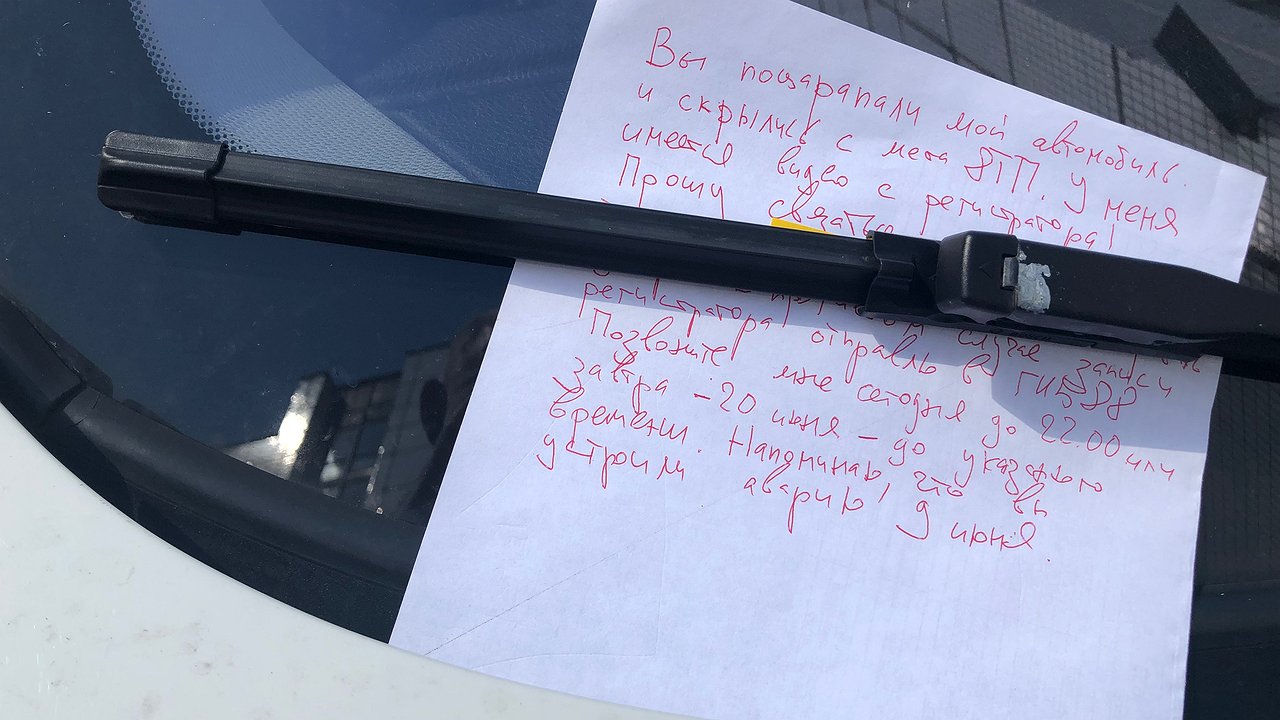 Вы поцарапали мой автомобиль.
и скрылись с места ДТП. У меня
имеется видео с регистратора!
Прошу связаться
случае записи
регистратора отправлю в ГИБДД
Позвоните мне сегодня до 22.00 или
завтра - 20 июня - до указанного
времени. Напоминаю, что вы
устроили аварию 9 июня.